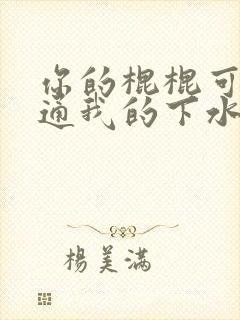 你的棍棍可
通我的下水
楊美滿